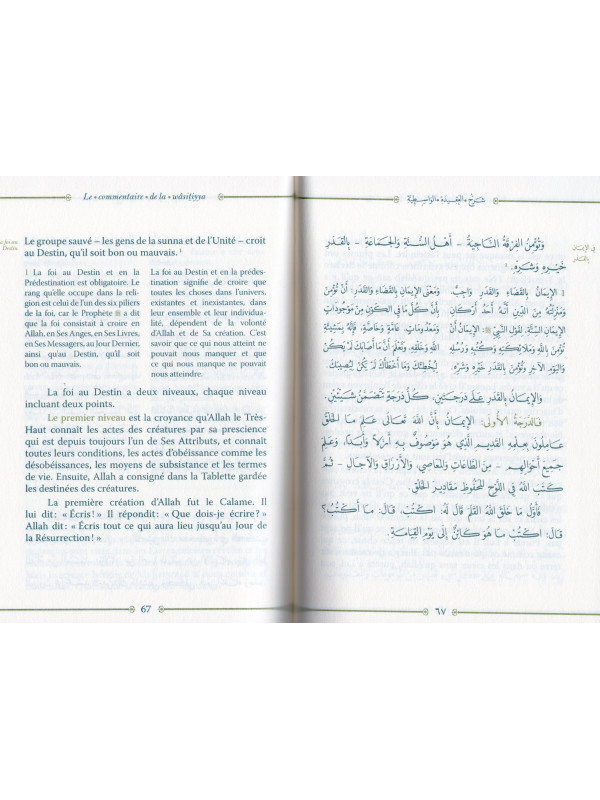 Le • commentaire • de la • wâsitiyya
la foi au
Destin
Le groupe sauvé – les gens de la sunna et de l'Unité – croit
au Destin, qu'il soit bon ou mauvais. 1
1 La foi au Destin et en la
Prédestination est obligatoire. Le
rang qu'elle occupe dans la reli-
gion est celui de l'un des six piliers
de la foi, car le Prophète ﷺ a dit
que la foi consistait à croire en
Allah, en Ses Anges, en Ses Livres,
en Ses Messagers, au Jour Dernier,
ainsi qu'au Destin, qu'il soit
bon ou mauvais.
La foi au Destin et en la prédes-
tination signifie de croire que
toutes les choses dans l'univers,
existantes et inexistantes, dans
leur ensemble et leur individua-
lité, dépendent de la volonté
d'Allah et de Sa création. C'est
savoir que ce qui nous atteint ne
pouvait nous manquer et que
ce qui nous manque ne pouvait
nous atteindre.
La foi au Destin a deux niveaux, chaque niveau
incluant deux points.
Le premier niveau est la croyance qu'Allah le Très-
Haut connaît les actes des créatures par sa prescience
qui est depuis toujours l'un de Ses Attributs, et connaît
toutes leurs conditions, les actes d'obéissance comme les
désobéissances, les moyens de subsistance et les termes
de vie. Ensuite, Allah a consigné dans la Tablette gardée
les destinées des créatures.
La première création d'Allah fut le Calame. Il
lui dit : « Écris ! » Il répondit : « Que dois-je écrire ? »
Allah dit : « Écris tout ce qui aura lieu jusqu'au Jour de
la Résurrection ! »
67
شَرْحُ • العَقِيدَةِ • الوَاسِطِيَّةِ
في الإيمان
بالقدر
وَتُؤْمِنُ الفِرْقَةُ النَّاجِيَةُ – أَهْلُ السُّنَّةِ وَالجَمَاعَةِ – بِالقَدَرِ
خَيْرِهِ وَشَرِّهِ. ١
١ الإِيمَانُ بِالقَضَاءِ وَالقَدَرِ وَاجِبٌ.
وَمَنْزِلَتُهُ مِنَ الدِّينِ أَنَّهُ أَحَدُ أَرْكَانِ
الإِيمَانِ السِّتَّةِ، لِقَوْلِ النَّبِيِّ ﷺ: الإِيمَانُ أَنْ
تُؤْمِنَ بِاللهِ وَمَلَائِكَتِهِ وَكُتُبِهِ وَرُسُلِهِ
وَاليَوْمِ الآخِرِ وَتُؤْمِنَ بِالقَدَرِ خَيْرِهِ وَشَرِّهِ.
وَمَعْنَى الإِيمَانِ بِالقَضَاءِ وَالقَدَرِ: أَنْ تُؤْمِنَ
بِأَنَّ كُلَّ مَا فِي الكَوْنِ مِنْ مَوْجُودَاتٍ
وَمَعْدُومَاتٍ، عَامَّةٍ وَخَاصَّةٍ، فَإِنَّهُ بِمَشِيئَةِ
اللهِ وَخَلْقِهِ، وَتَعْلَمَ أَنَّ مَا أَصَابَكَ لَمْ يَكُنْ
لِيُخْطِئَكَ وَمَا أَخْطَأَكَ لَمْ يَكُنْ لِيُصِيبَكَ.
وَالإِيمَانُ بِالقَدَرِ عَلَى دَرَجَتَيْنِ، كُلُّ دَرَجَةٍ تَتَضَمَّنُ شَيْئَيْنِ.
فَالدَّرَجَةُ الأُولَى: الإِيمَانُ بِأَنَّ اللهَ تَعَالَى عَلِمَ مَا الخَلْقُ
عَامِلُونَ بِعِلْمِهِ القَدِيمِ الَّذِي هُوَ مَوْصُوفٌ بِهِ أَزَلًا وَأَبَدًا، وَعَلِمَ
جَمِيعَ أَحْوَالِهِمْ – مِنَ الطَّاعَاتِ وَالمَعَاصِي، وَالأَرْزَاقِ وَالآجَالِ – ثُمَّ
كَتَبَ اللهُ فِي اللَّوْحِ المَحْفُوظِ مَقَادِيرَ الخَلْقِ.
فَأَوَّلُ مَا خَلَقَ اللهُ القَلَمَ قَالَ لَهُ: اكْتُبْ، قَالَ: مَا أَكْتُبُ؟
قَالَ: اكْتُبْ مَا هُوَ كَائِنٌ إِلَى يَوْمِ القِيَامَةِ.
٦٧